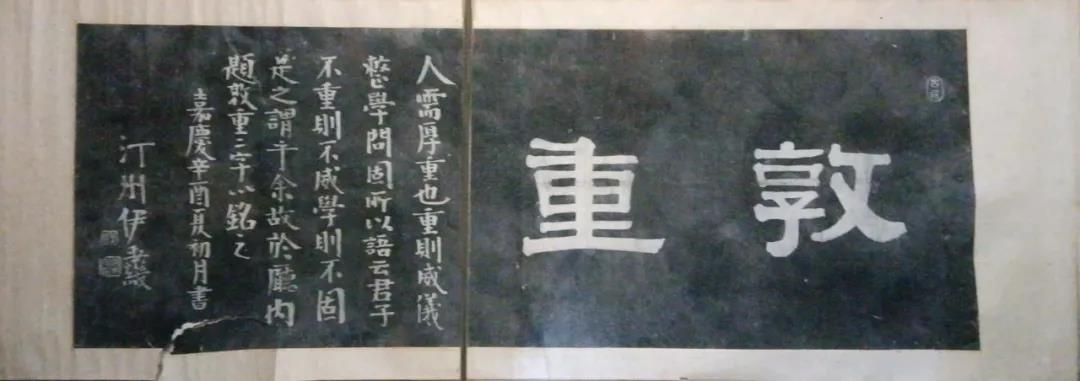 敦重
人需厚重也重則威儀
整學問固所以語云君子
不重則不威學則不固
是之謂乎余故於廳内
題敦重二字以銘之
嘉慶辛酉夏初月書
汀州伊秉綬